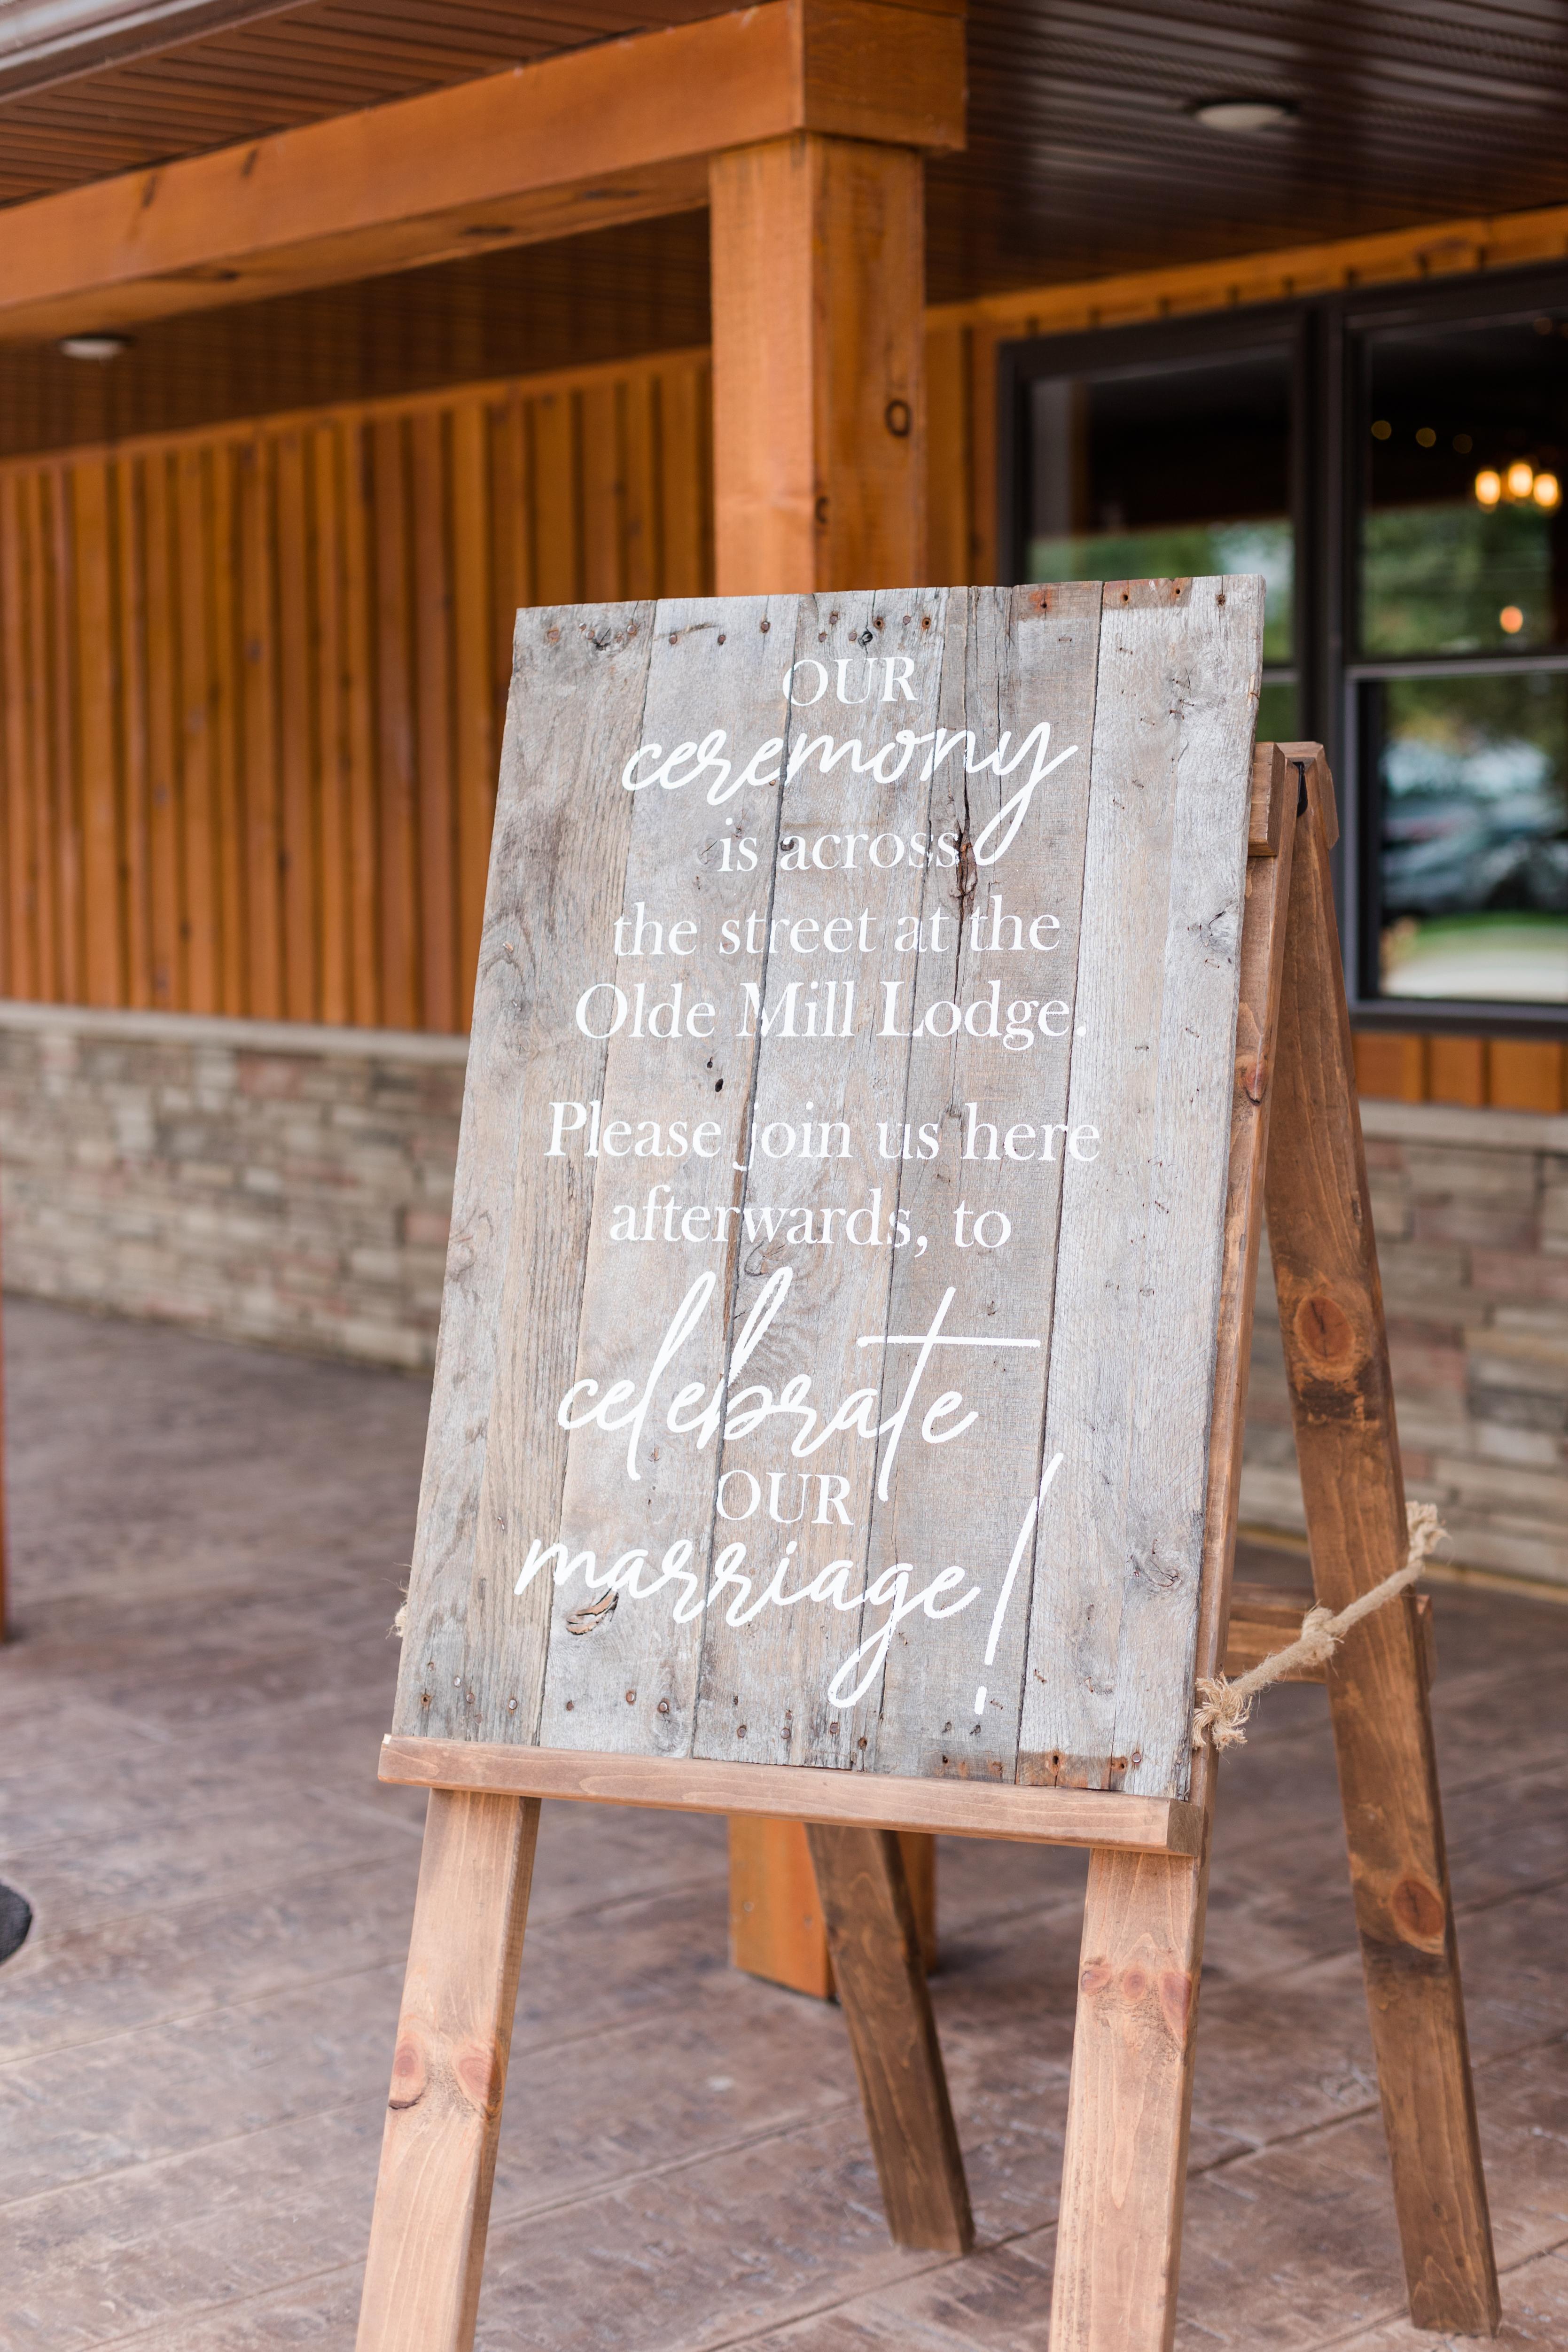 OUR
ceremony
is across
the street at the
Olde Mill Lodge.
Please join us here
afterwards, to
celebrate
OUR
marriage!